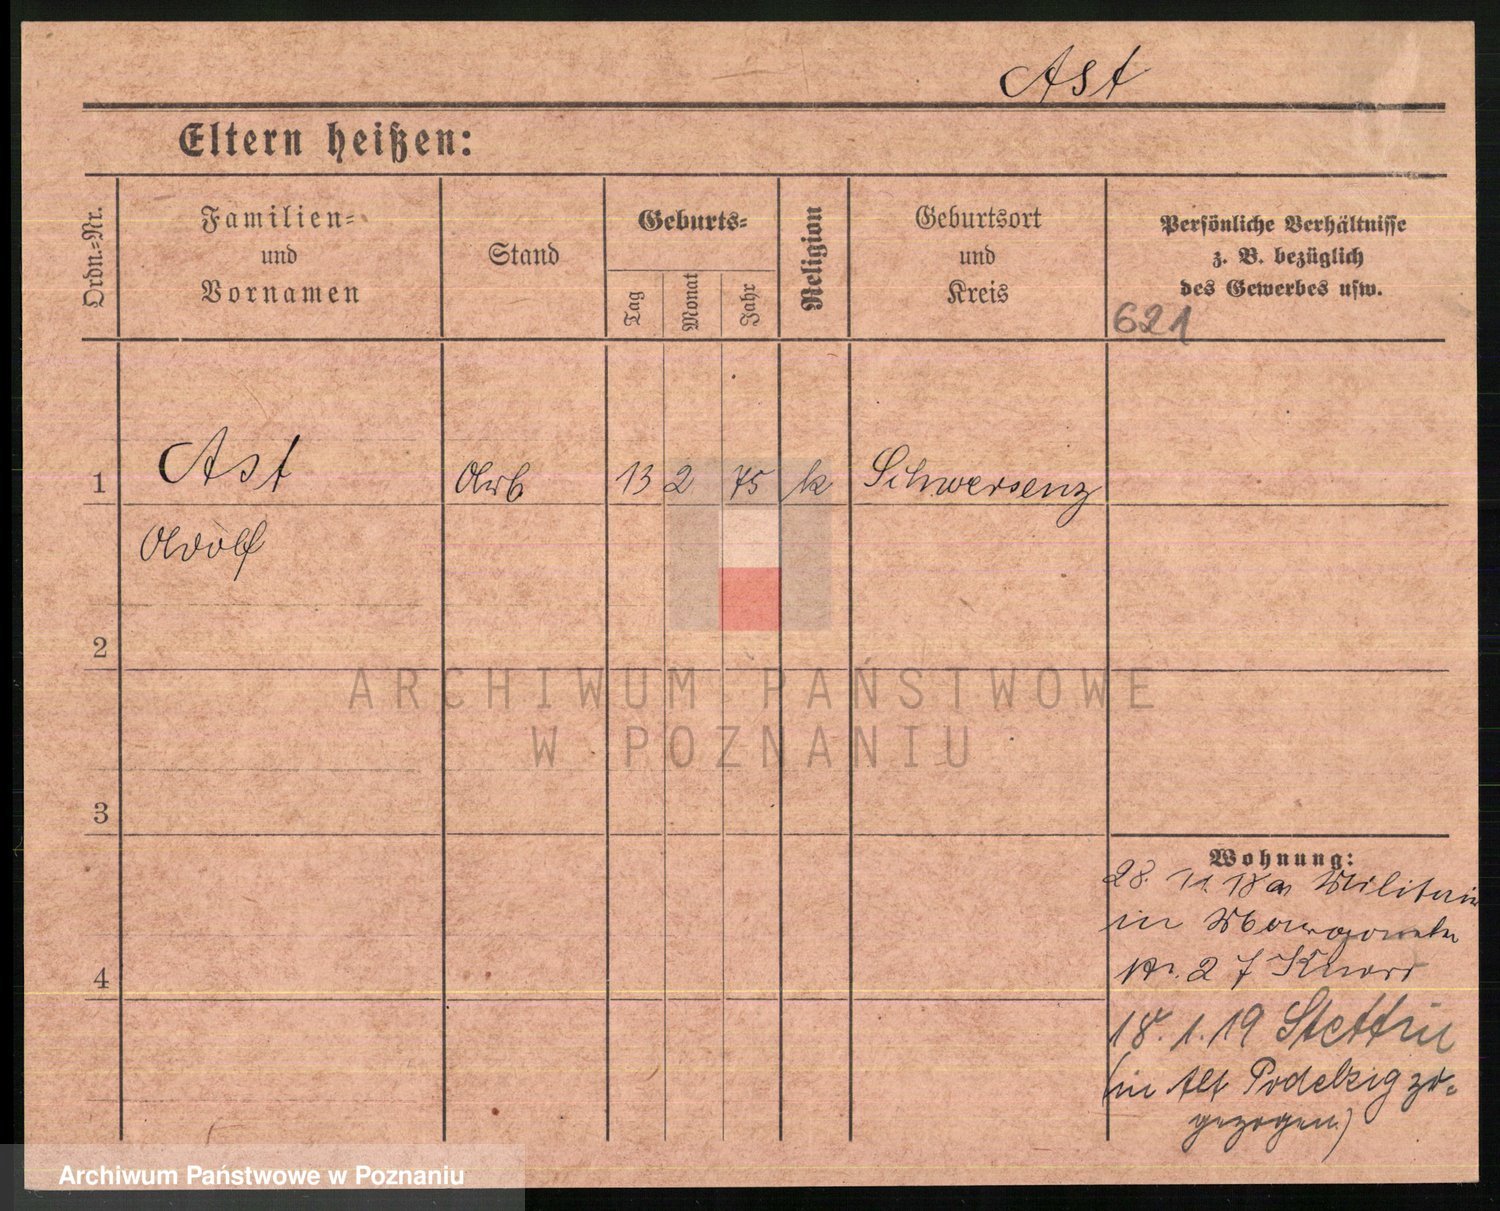 Ast
Eltern heißen:
Ordn.-Nr.
Familien-
und
Vornamen
Stand
Geburts-
Tag
Monat
Jahr
Religion
Geburtsort
und
Kreis
Persönliche Verhältnisse
z. B. bezüglich
des Gewerbes usw.
621
1
Ast
Arb
13
2
75
k
Schwersenz
Adolf
2
ARCHIWUM PAŃSTWOWE
W POZNANIU
3
Wohnung:
28. 11. 18 a Militair
in
4
Nr. 27 Knorr
18. 1. 19 Stettin
(in Alt Podelzig zu-
gezogen.)
Archiwum Państwowe w Poznaniu